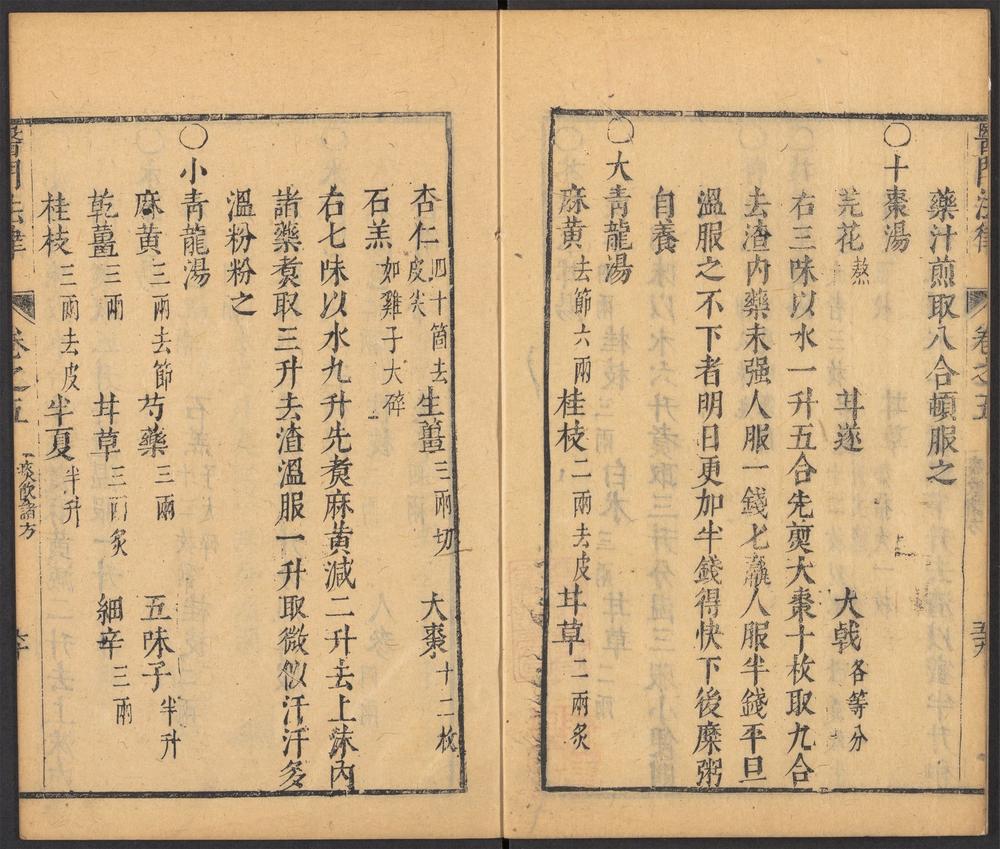 醫門法律 卷之五 五九
藥汁煎取八合頓服之
〇十棗湯
芫花熬 甘遂 大戟各等分
右三味以水一升五合先煑大棗十枚取九合
去渣内藥末强人服一錢匕羸人服半錢平旦
溫服之不下者明日更加半錢得快下後糜粥
自養
〇大青龍湯
麻黄去節六兩 桂枝二兩去皮 甘草二兩炙
杏仁四十箇去皮尖 生薑三兩切 大棗十二枚
石羔如雞子大碎
右七味以水九升先煑麻黄減二升去上沫内
諸藥煑取三升去渣溫服一升取微似汗汗多
溫粉粉之
〇小青龍湯
麻黄三兩去節 芍藥三兩 五味子半升
乾薑三兩 甘草三兩炙 細辛三兩
桂枝三兩去皮 半夏半升
醫門法律 卷之五 痰飲諸方